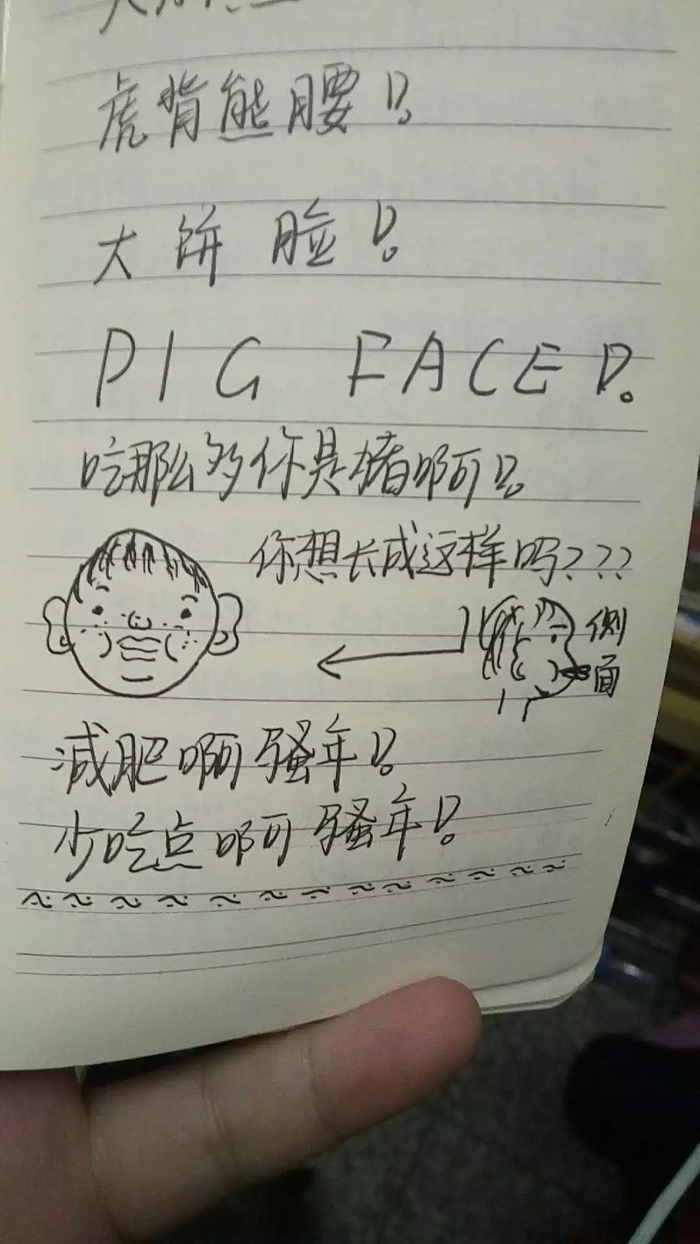 虎背熊腰!
大饼脸!
PIG FACE!
吃那么多你是猪啊!
你想长成这样吗???
侧
面
减肥啊骚年!
少吃点啊骚年!